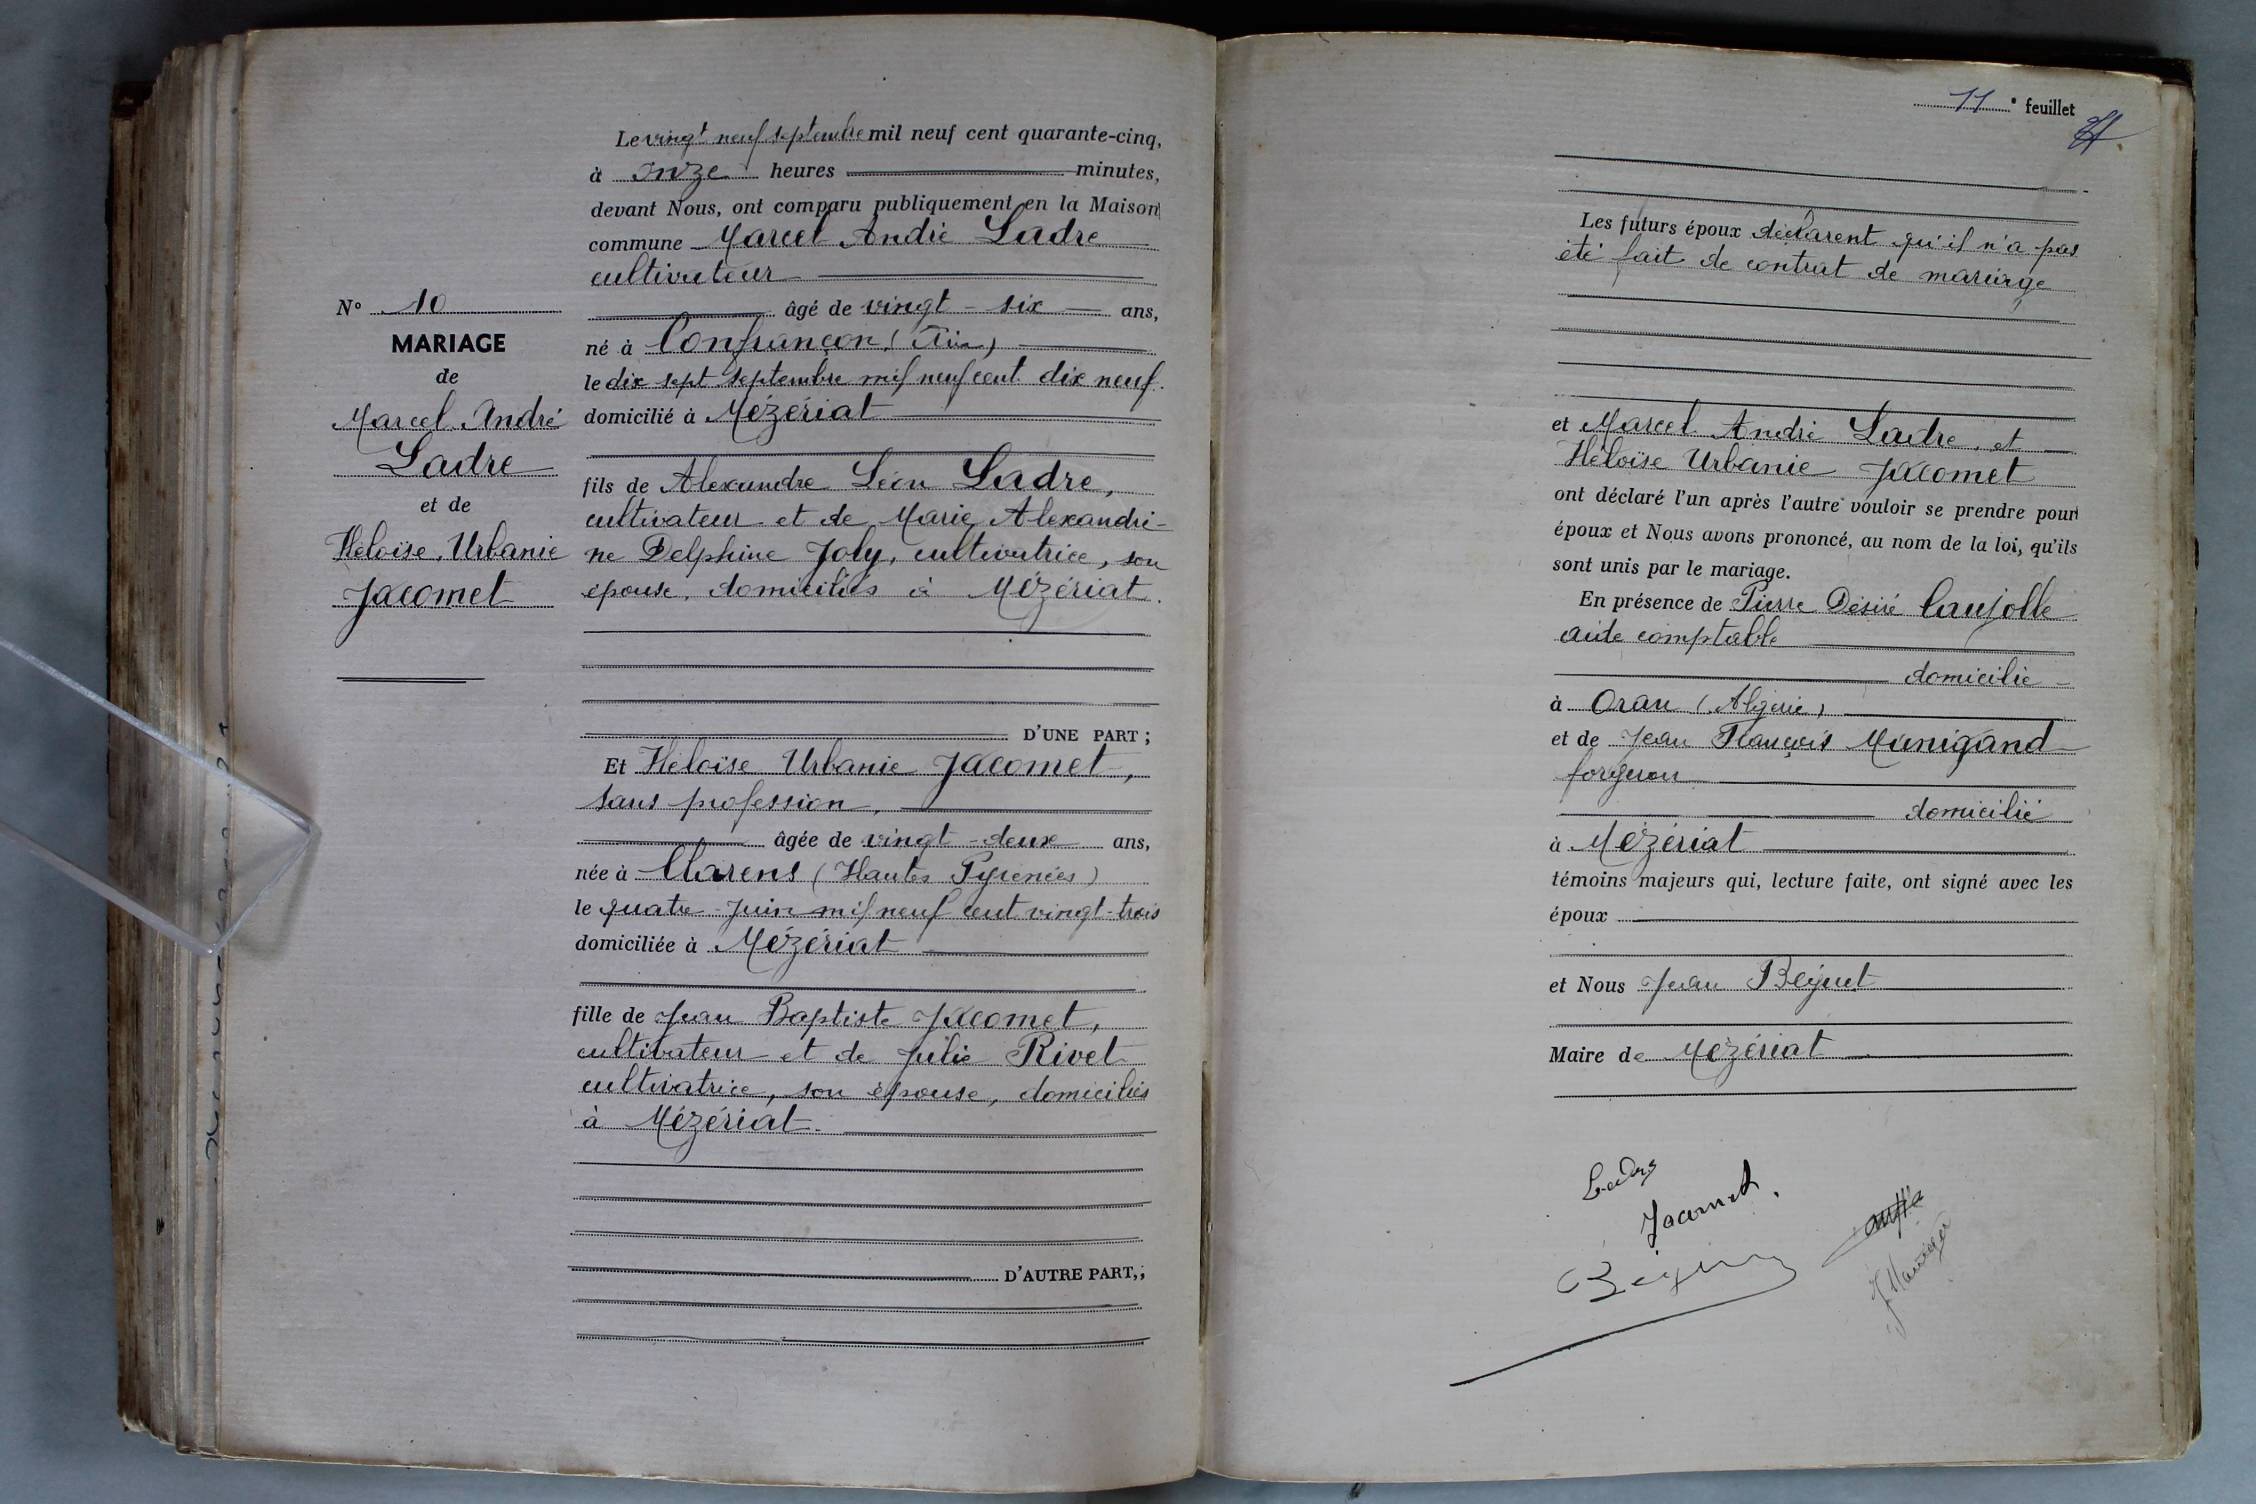 Le vingt neuf septembre mil neuf cent quarante-cinq,
à onze heures minutes,
devant Nous, ont comparu publiquement en la Maison
commune Marcel André Ladre
cultivateur
âgé de vingt-six ans,
né à Confrançon (Ain)
le dix sept septembre mil neuf cent dix neuf.
domicilié à Mézériat
fils de Alexandre Léon Ladre,
cultivateur et de Marie Alexandri-
ne Delphine Joly, cultivatrice, son
épouse, domiciliés à Mézériat.
D'UNE PART ;
Et Héloïse Urbanie Jacomet,
sans profession,
âgée de vingt-deux ans,
née à Clarens (Hautes Pyrénées)
le quatre Juin mil neuf cent vingt-trois
domiciliée à Mézériat
fille de Jean Baptiste Jacomet,
cultivateur et de Julie Rivet
cultivatrice, son épouse, domiciliés
à Mézériat.
D'AUTRE PART,;
N° 10
MARIAGE
de
Marcel André
Ladre
et de
Héloïse Urbanie
Jacomet
11 e feuillet
Les futurs époux déclarent qu'il n'a pas
été fait de contrat de mariage
et Marcel André Ladre, et
Héloïse Urbanie Jacomet
ont déclaré l'un après l'autre vouloir se prendre pour
époux et Nous avons prononcé, au nom de la loi, qu'ils
sont unis par le mariage.
En présence de Pierre Désiré Caujolle
aide comptable
domicilié
à Oran (Algérie)
et de Jean François Manigand
forgeron
domicilié
à Mézériat
témoins majeurs qui, lecture faite, ont signé avec les
époux
et Nous Jean Béguet
Maire de Mézériat
Ladre
Jacomet.